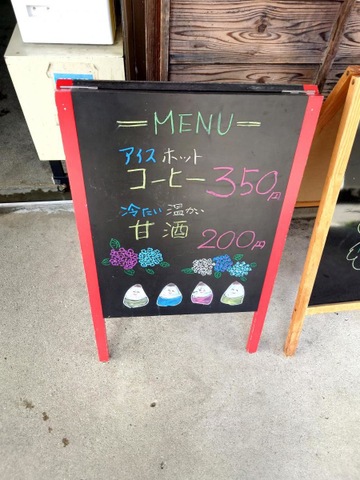 =MENU=
アイス ホット
コーヒー 350円
冷たい 温かい
甘酒 200円